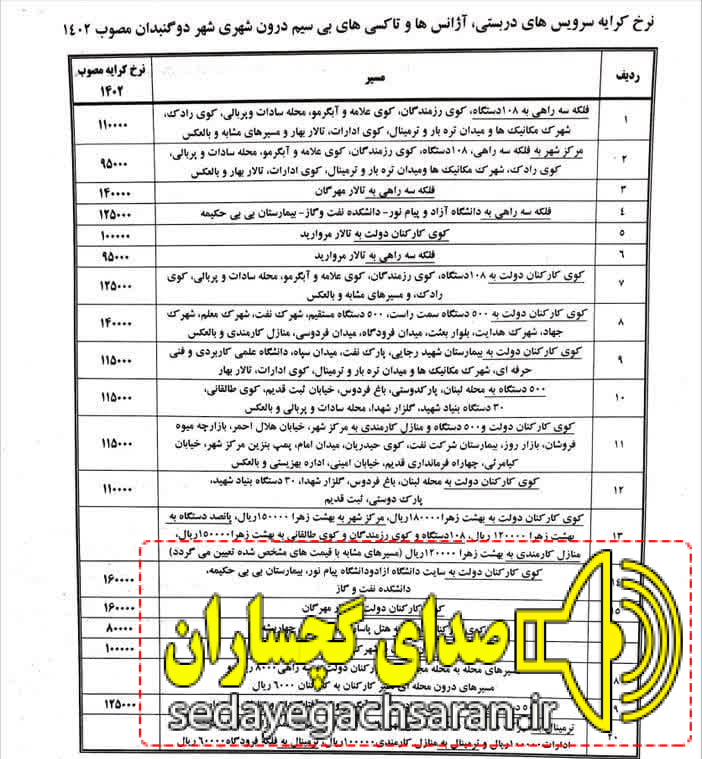 نرخ کرایه سرویس های دربستی، آژانس ها و تاکسی های بی سیم درون شهری شهر دوگنبدان مصوب ۱۴۰۲
ردیف مسیر نرخ کرایه مصوب ۱۴۰۲
۱ فلکه سه راهی به ۱۰۸دستگاه، کوی رزمندگان، کوی علامه و آبگرمو، محله سادات وپربالی، کوی رادک،
شهرک مکانیک ها و میدان تره بار و ترمینال، کوی ادارات، تالار بهار و مسیرهای مشابه و بالعکس ۱۱۰۰۰۰
۲ مرکز شهر به فلکه سه راهی، ۱۰۸دستگاه، کوی رزمندگان، کوی علامه و آبگرمو، محله سادات و پربالی،
کوی رادک، شهرک مکانیک ها ومیدان تره بار و ترمینال، کوی ادارات، تالار بهار و بالعکس ۹۵۰۰۰
۳ فلکه سه راهی به تالار مهرگان ۱۴۰۰۰۰
۴ فلکه سه راهی به دانشگاه آزاد و پیام نور- دانشکده نفت وگاز- بیمارستان بی بی حکیمه ۱۲۵۰۰۰
۵ کوی کارکنان دولت به تالار مروارید ۱۰۰۰۰۰
۶ فلکه سه راهی به تالار مروارید ۹۵۰۰۰
۷ کوی کارکنان دولت به ۱۰۸دستگاه، کوی رزمندگان، کوی علامه و آبگرمو، محله سادات و پربالی، کوی
رادک، و مسیرهای مشابه و بالعکس ۱۲۵۰۰۰
۸ کوی کارکنان دولت به ۵۰۰ دستگاه سمت راست، ۵۰۰ دستگاه مستقیم، شهرک نفت، شهرک معلم، شهرک
جهاد، شهرک هدایت، بلوار بعثت، میدان فرودگاه، میدان فردوسی، منازل کارمندی و بالعکس ۱۴۰۰۰۰
۹ کوی کارکنان دولت به بیمارستان شهید رجایی، پارک نفت، میدان سپاه، دانشگاه علمی کاربردی و فنی
حرفه ای، شهرک مکانیک ها و میدان تره بار و ترمینال، کوی ادارات، تالار بهار ۱۱۵۰۰۰
۱۰ ۵۰۰ دستگاه به محله لبنان، پارکدوستی، باغ فردوس، خیابان ثبت قدیم، کوی طالقانی،
۳۰ دستگاه بنیاد شهید، گلزار شهدا، محله سادات و پربالی و بالعکس ۱۱۵۰۰۰
۱۱ کوی کارکنان دولت و۵۰۰ دستگاه و منازل کارمندی به مرکز شهر، خیابان هلال احمر، بازارچه میوه
فروشان، بازار روز، بیمارستان شرکت نفت، کوی حیدریان، میدان امام، پمپ بنزین مرکز شهر، خیابان
کیامرثی، چهاراه فرمانداری قدیم، خیابان امینی، اداره بهزیستی و بالعکس ۱۱۵۰۰۰
۱۲ کوی کارکنان دولت به محله لبنان، باغ فردوس، گلزار شهدا، ۳۰ دستگاه بنیاد شهید،
پارک دوستی، ثبت قدیم ۱۱۰۰۰۰
۱۳ کوی کارکنان دولت به بهشت زهرا ۱۸۰۰۰۰ریال، مرکز شهر به بهشت زهرا ۱۵۰۰۰۰ریال، پانصد دستگاه به
بهشت زهرا ۱۲۰۰۰۰ ریال، ۱۰۸دستگاه و کوی رزمندگان و کوی طالقانی به بهشت زهرا۱۵۰۰۰۰ریال،
منازل کارمندی به بهشت زهرا ۱۲۰۰۰۰ریال (مسیرهای مشابه با قیمت های مشخص شده تعیین می گردد)
کوی کارکنان دولت به سایت دانشگاه ازادودانشگاه پیام نور، بیمارستان بی بی حکیمه،
دانشکده نفت و گاز ۱۶۰۰۰۰
کوی کارکنان دولت مهرگان ۱۶۰۰۰۰
به هتل ۸۰۰۰۰
۱۰۰۰۰۰
مسیرهای محله به محله کارکنان دولت
مسیرهای درون محله ای کارکنان به ۶۰۰۰ ریال
۱۲۵۰۰۰
۲۰ ترمینال به
ادارات ریال و ترمینال به منازل کارمندی۱۰۰۰۰۰ریال، ترمینال به فلکه فرودگاه ۶۰۰۰۰ریال
صدای گچساران
sedayegachsaran.ir